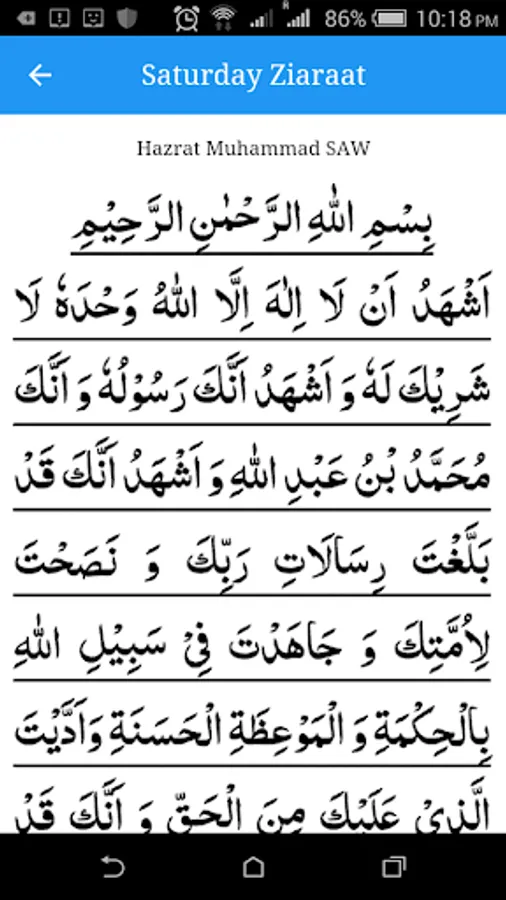 86% 10:18 PM
Saturday Ziaraat
Hazrat Muhammad SAW
بِسْمِ اللهِ الرَّحْمٰنِ الرَّحِيْمِ
اَشْهَدُ اَنْ لَا اِلٰهَ اِلَّا اللهُ وَحْدَهٗ لَا
شَرِيْكَ لَهٗ وَ اَشْهَدُ اَنَّكَ رَسُوْلُهٗ وَ اَنَّكَ
مُحَمَّدُ بْنُ عَبْدِ اللهِ وَ اَشْهَدُ اَنَّكَ قَدْ
بَلَّغْتَ رِسَالَاتِ رَبِّكَ وَ نَصَحْتَ
لِاُمَّتِكَ وَ جَاهَدْتَ فِيْ سَبِيْلِ اللهِ
بِالْحِكْمَةِ وَ الْمَوْعِظَةِ الْحَسَنَةِ وَ اَدَّيْتَ
الَّذِيْ عَلَيْكَ مِنَ الْحَقِّ وَ اَنَّكَ قَدْ